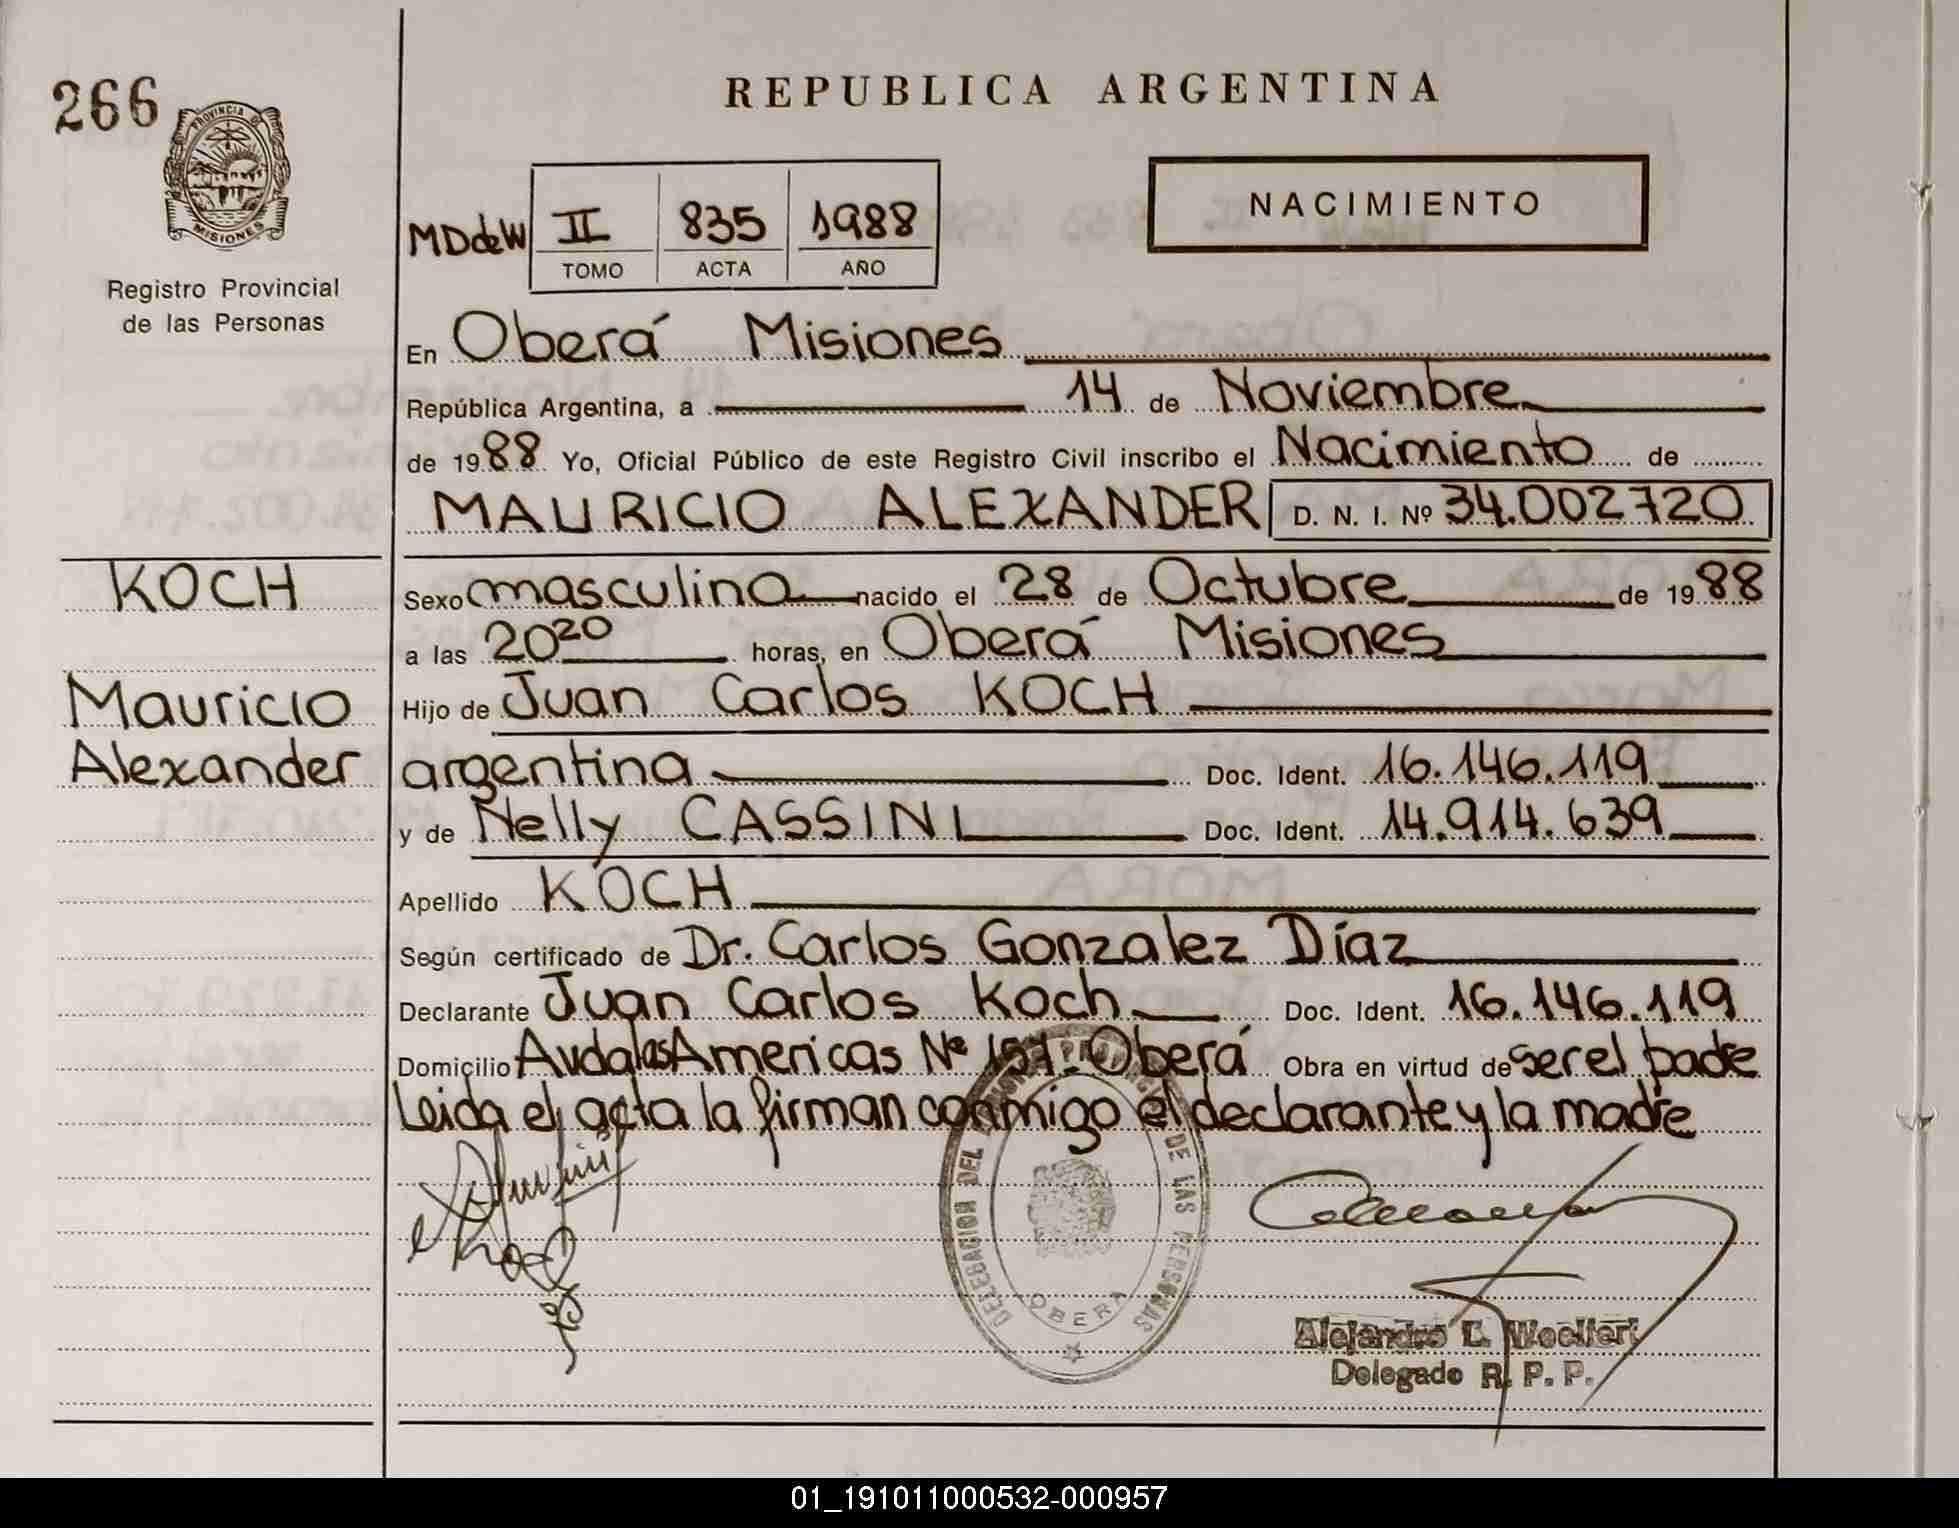 266
PROVINCIA DE
MISIONES
Registro Provincial
de las Personas
REPUBLICA ARGENTINA
MDdeW II 835 1988
TOMO ACTA AÑO
NACIMIENTO
En Oberá Misiones
República Argentina, a 14 de Noviembre
de 1988 Yo, Oficial Público de este Registro Civil inscribo el Nacimiento de
MAURICIO ALEXANDER D. N. I. Nº 34.002720
KOCH
Sexo masculino nacido el 28 de Octubre de 1988
a las 20 20 horas, en Oberá Misiones
Mauricio
Hijo de Juan Carlos KOCH
Alexander
argentina Doc. Ident. 16.146.119
y de Nelly CASSINI Doc. Ident. 14.914.639
Apellido KOCH
Según certificado de Dr. Carlos Gonzalez Díaz
Declarante Juan Carlos Koch Doc. Ident. 16.146.119
Domicilio Avda las Americas Nº 157. Oberá Obra en virtud de ser el padre
Leida el acta la firman conmigo el declarante y la madre
DELEGACION DEL DE LAS PERSONAS
OBERA
Alejandro L. Woelfert
Delegado R. P. P.
01_191011000532-000957